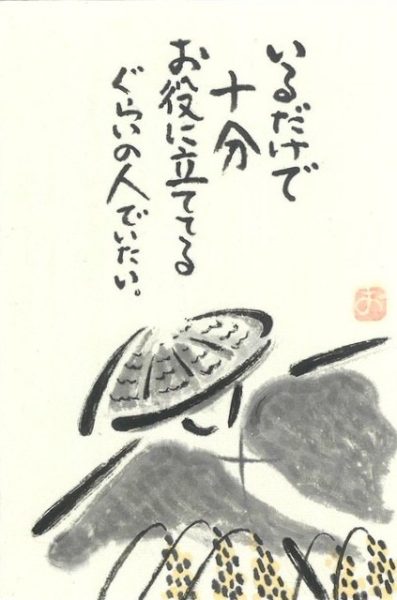 いるだけで
十分
お役に立ててる
ぐらいの人でいたい。
お